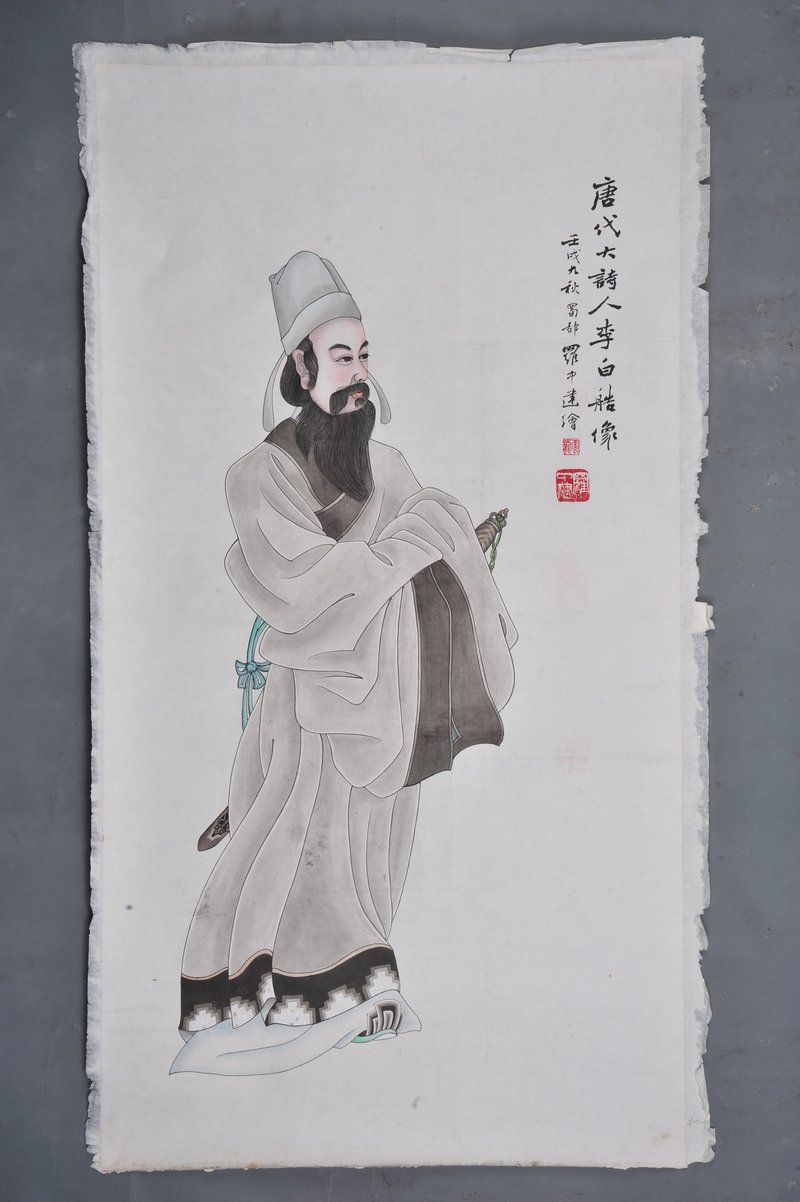 唐代大詩人李白艁像
壬戌九秋蜀羅中繪